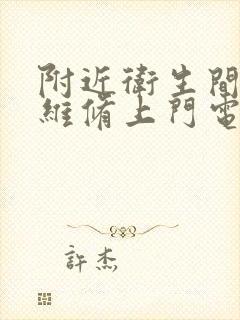 附近衛生間
維脩上門電
許杰